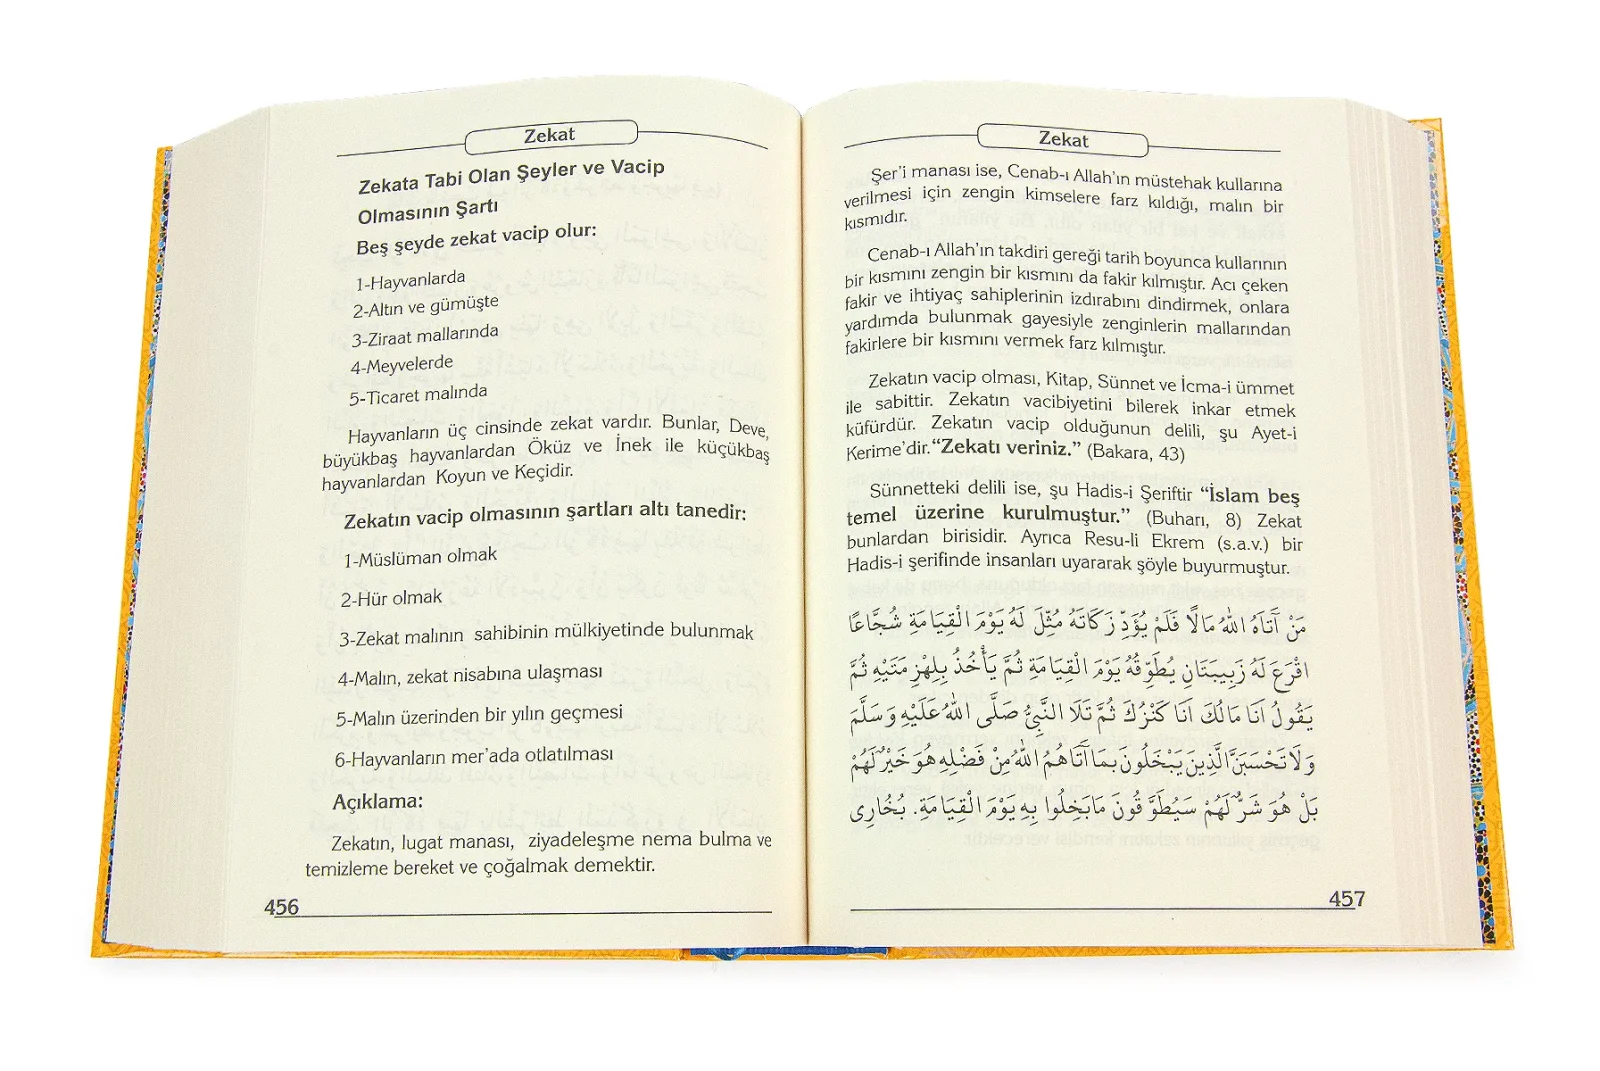 Zekat
Zekata Tabi Olan Şeyler ve Vacip
Olmasının Şartı
Beş şeyde zekat vacip olur:
1-Hayvanlarda
2-Altın ve gümüşte
3-Ziraat mallarında
4-Meyvelerde
5-Ticaret malında
Hayvanların üç cinsinde zekat vardır. Bunlar, Deve,
büyükbaş hayvanlardan Öküz ve İnek ile küçükbaş
hayvanlardan Koyun ve Keçidir.
Zekatın vacip olmasının şartları altı tanedir:
1-Müslüman olmak
2-Hür olmak
3-Zekat malının sahibinin mülkiyetinde bulunmak
4-Malın, zekat nisabına ulaşması
5-Malın üzerinden bir yılın geçmesi
6-Hayvanların mer'ada otlatılması
Açıklama:
Zekatın, lugat manası, ziyadeleşme nema bulma ve
temizleme bereket ve çoğalmak demektir.
456
Zekat
Şer'i manası ise, Cenab-ı Allah'ın müstehak kullarına
verilmesi için zengin kimselere farz kıldığı, malın bir
kısmıdır.
Cenab-ı Allah'ın takdiri gereği tarih boyunca kullarının
bir kısmını zengin bir kısmını da fakir kılmıştır. Acı çeken
fakir ve ihtiyaç sahiplerinin izdırabını dindirmek, onlara
yardımda bulunmak gayesiyle zenginlerin mallarından
fakirlere bir kısmını vermek farz kılmıştır.
Zekatın vacip olması, Kitap, Sünnet ve İcma-i ümmet
ile sabittir. Zekatın vacibiyetini bilerek inkar etmek
küfürdür. Zekatın vacip olduğunun delili, şu Ayet-i
Kerime'dir. “Zekatı veriniz.” (Bakara, 43)
Sünnetteki delili ise, şu Hadis-i Şeriftir “İslam beş
temel üzerine kurulmuştur.” (Buharı, 8) Zekat
bunlardan birisidir. Ayrıca Resu-li Ekrem (s.a.v.) bir
Hadis-i şerifinde insanları uyararak şöyle buyurmuştur.
مَنْ آتَاهُ اللهُ مَالًا فَلَمْ يُؤَدِّ زَكَاتَهُ مُثِّلَ لَهُ يَوْمَ الْقِيَامَةِ شُجَّاعًا
اقْرَعَ لَهُ زَبِيبَتَانِ يُطَوِّقُهُ يَوْمَ الْقِيَامَةِ ثُمَّ يَأْخُذُ بِلِهْزِ مَتَيْهِ ثُمَّ
يَقُولُ اَنَا مَالُكَ اَنَا كَنْزُكَ ثُمَّ تَلَا النَّبِيُّ صَلَّى اللهُ عَلَيْهِ وَسَلَّمَ
وَلَا تَحْسَبَنَّ الَّذِينَ يَبْخَلُونَ بِمَا آتَاهُمُ اللهُ مِنْ فَضْلِهِ هُوَ خَيْرٌ لَهُمْ
بَلْ هُوَ شَرٌّ لَهُمْ سَيُطَوَّقُونَ مَا بَخِلُوا بِهِ يَوْمَ الْقِيَامَةِ. بُخَارِى
457